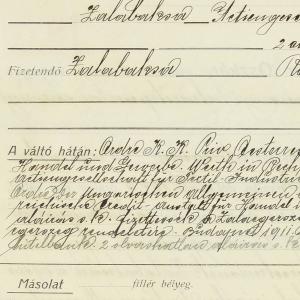 Zalabaksa Actienges
2 a
Fizetendő Zalabaksa
A váltó hátán: Ordre K. K. Priv. Oesterr
Handel und Gewerbe Werth in Rech
actiengesellschaft für Textil Industrie
Ordre der Ungarischen Allgemeinen
Credit-anstalt für Handel
aláirás s. k. Fizettessék a Zalaegersze
egerszeg rendeletére. Budapest 1911.
2 olvashatlan aláirás s. k.
Másolat fillér bélyeg.